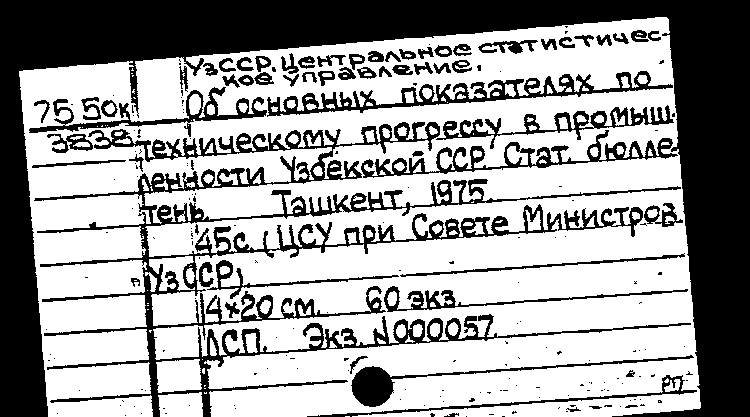 УзССР. Центральное статистичес-
кое управление.
75 50к Об основных показателях по
3838 техническому прогрессу в промыш-
ленности Узбекской ССР. Стат. бюлле-
тень. Ташкент, 1975.
45с. (ЦСУ при Совете Министров
УзССР).
4×20 см. 60 экз.
ДСП. Экз. N000057.
РП